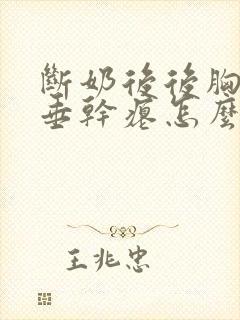 斷奶後後胸
垂幹癟怎麼
王兆忠